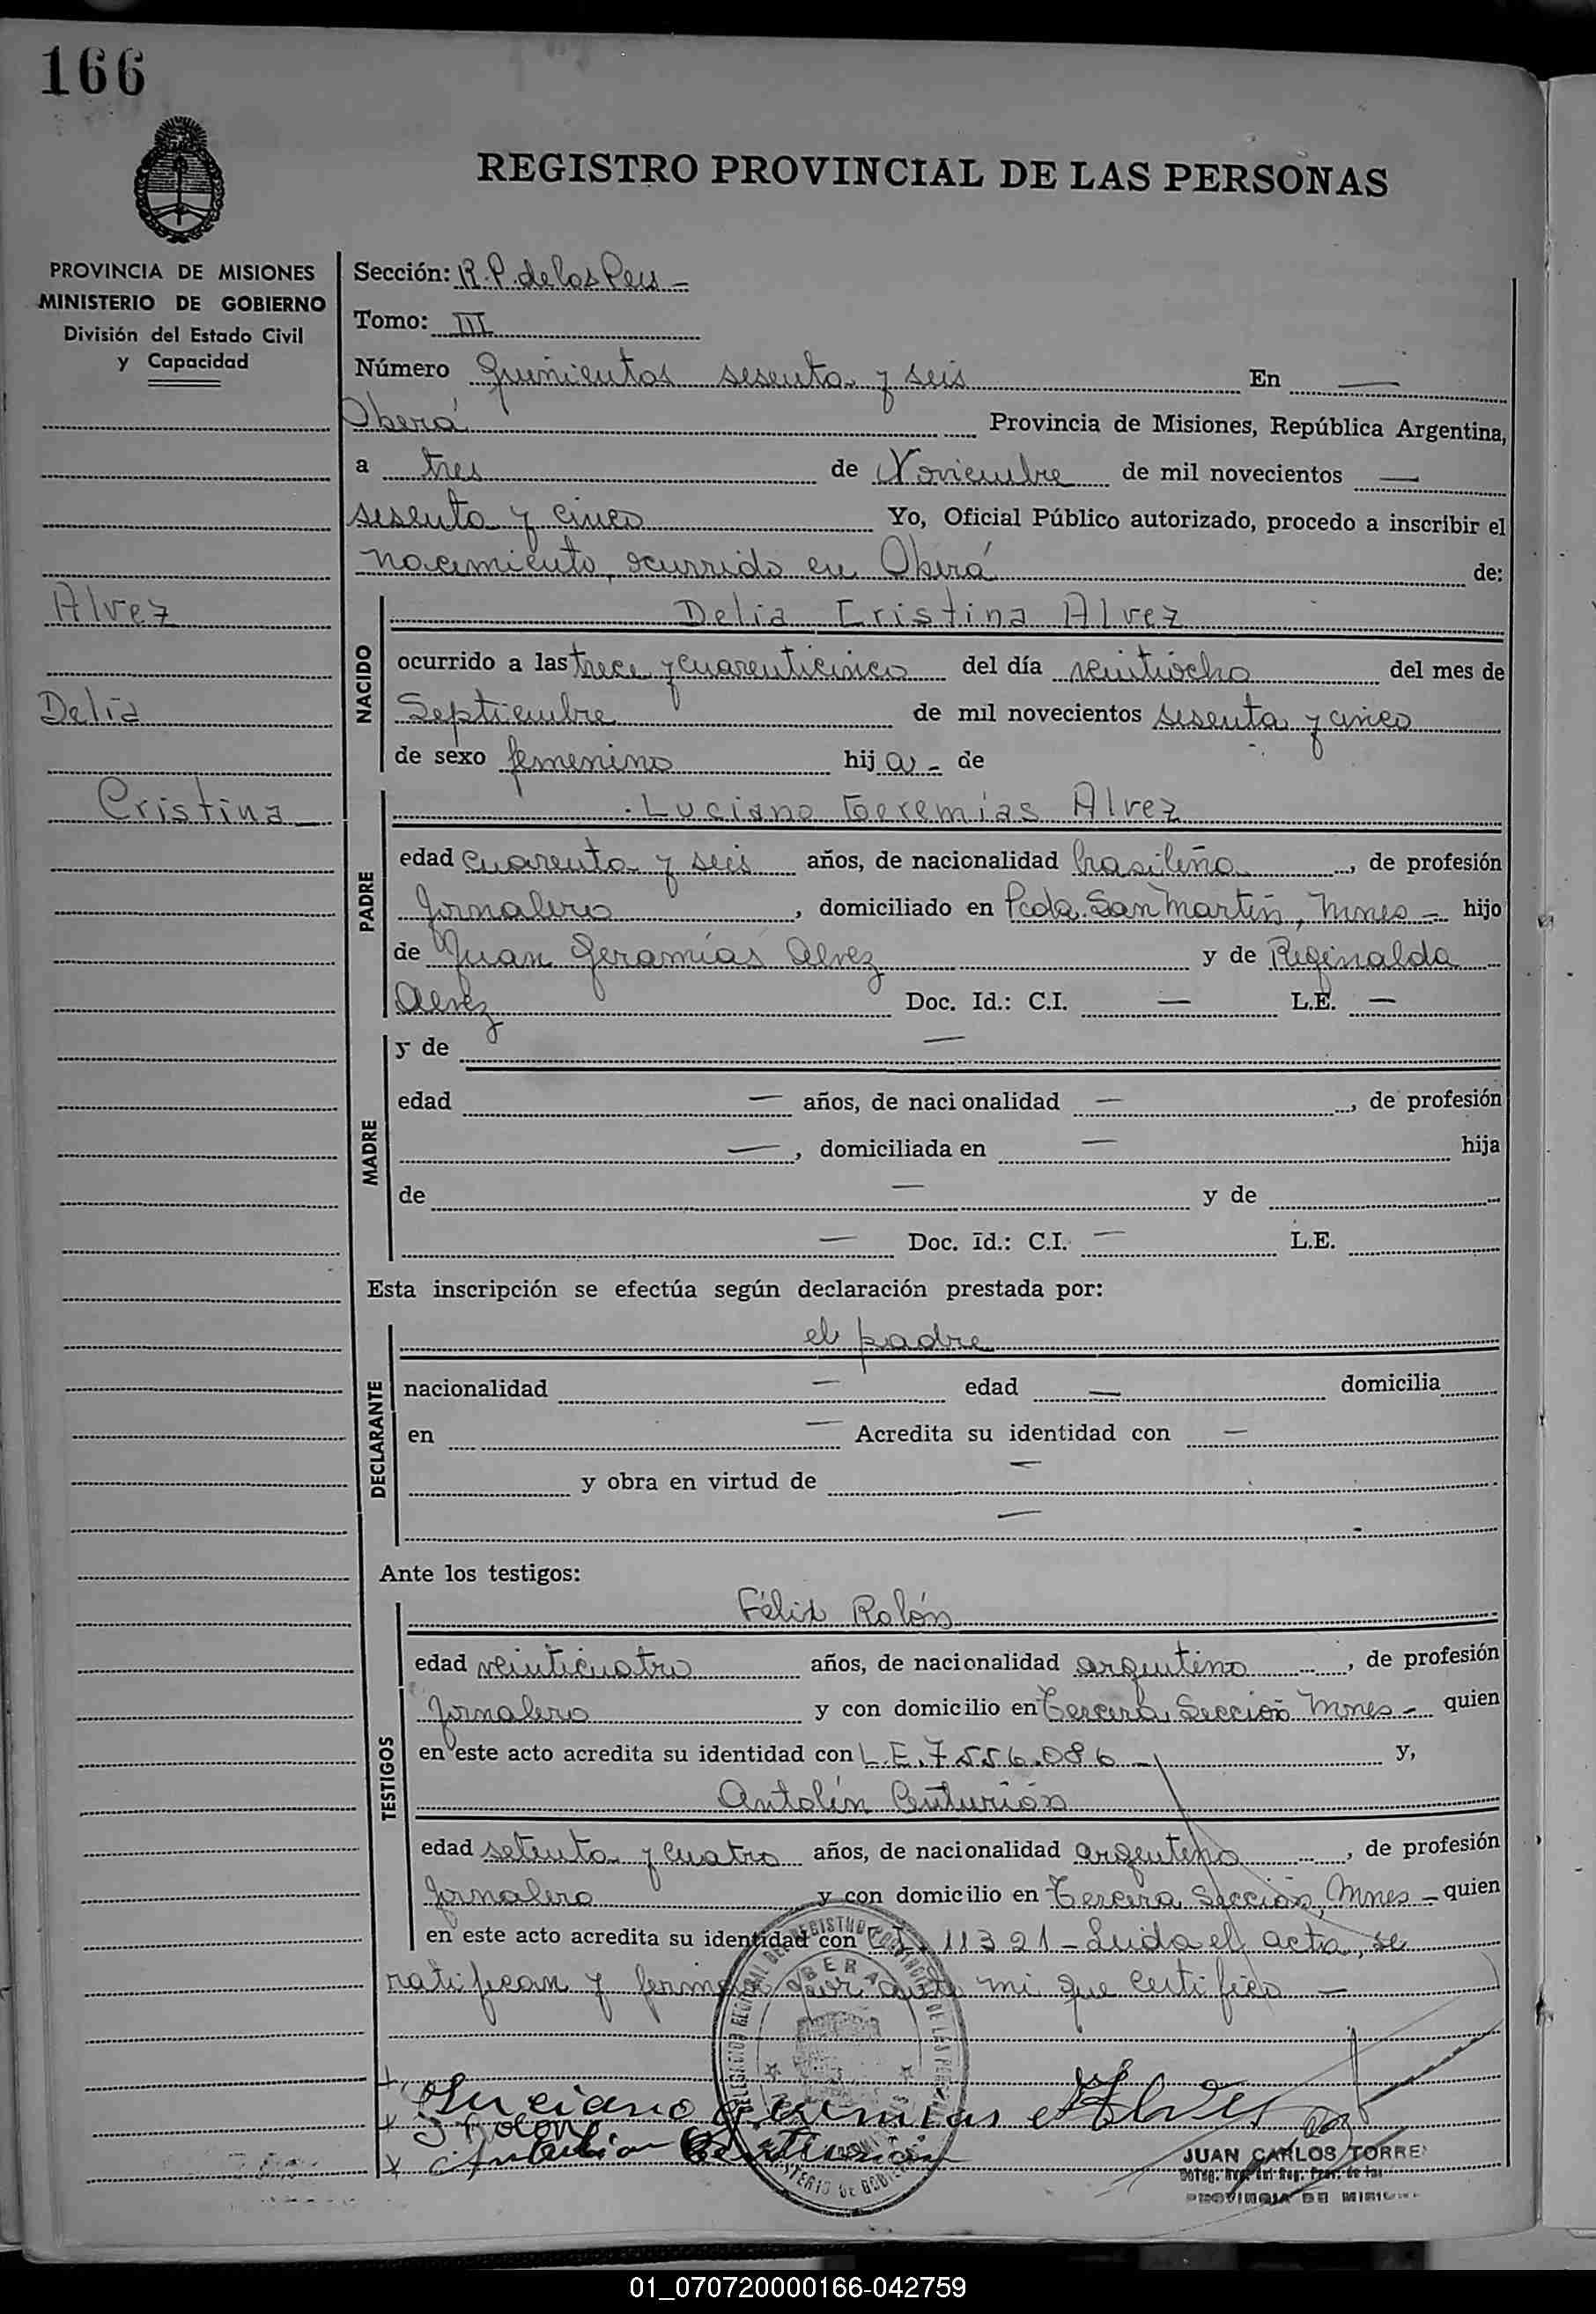 166
REGISTRO PROVINCIAL DE LAS PERSONAS
PROVINCIA DE MISIONES
MINISTERIO DE GOBIERNO
División del Estado Civil
y Capacidad
Sección: R.P. de las Pers -
Tomo: III
Número Quinientos sesenta y seis En —
Oberá Provincia de Misiones, República Argentina,
a tres de Noviembre de mil novecientos —
sesenta y cinco Yo, Oficial Público autorizado, procedo a inscribir el
nacimiento, ocurrido en Oberá de:
Alvez
Delia
Cristina
NACIDO
Delia Cristina Alvez
ocurrido a las trece y cuarenticinco del día veintiocho del mes de
Septiembre de mil novecientos sesenta y cinco
de sexo femenino hij a - de
PADRE
Luciano Geremías Alvez
edad cuarenta y seis años, de nacionalidad brasileña, de profesión
Jornalero, domiciliado en Pcda. San Martín, Mnes - hijo
de Juan Geramías Alvez y de Reginalda
Alvez Doc. Id.: C.I. — L.E. —
MADRE
y de —
edad — años, de nacionalidad —, de profesión
—, domiciliada en — hija
de — y de
— Doc. Id.: C.I. — L.E.
Esta inscripción se efectúa según declaración prestada por:
DECLARANTE
el padre
nacionalidad — edad — domicilia
en — Acredita su identidad con —
y obra en virtud de —
—
Ante los testigos:
TESTIGOS
Félix Rolón
edad veinticuatro años, de nacionalidad argentino, de profesión
Jornalero y con domicilio en Tercera Sección Mnes - quien
en este acto acredita su identidad con L.E. 7556.086 - y,
Antolín Centurión
edad setenta y cuatro años, de nacionalidad argentino, de profesión
Jornalero y con domicilio en Tercera Sección, Mnes - quien
en este acto acredita su identidad con C.I. 11321 - Leida el acta, se
ratifican y firman por ante mi que certifico —
OBERA
Luciano Geremias Alvez
F Rolon
Antolin Centurion
JUAN CARLOS TORRE
PROVINCIA DE MISIONES
01_070720000166-042759